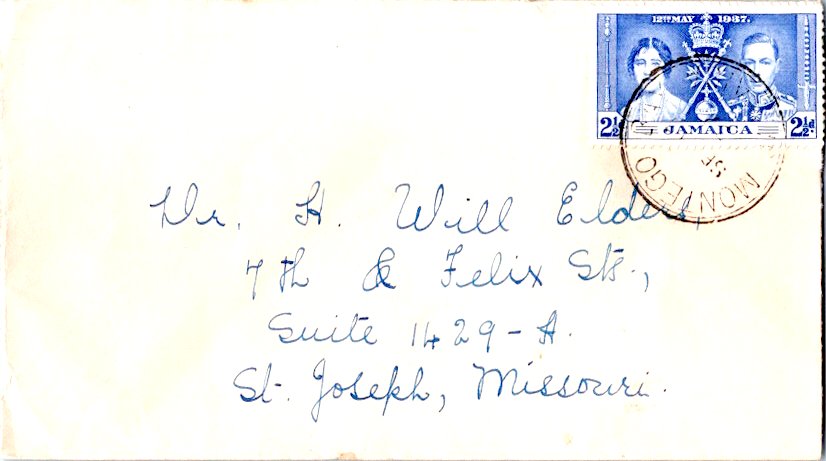 12TH MAY 1937.
2½d JAMAICA 2½d.
MONTEGO
Dr. H. Will Elders,
7th & Felix Sts.,
Suite 1429-A.
St. Joseph, Missouri.